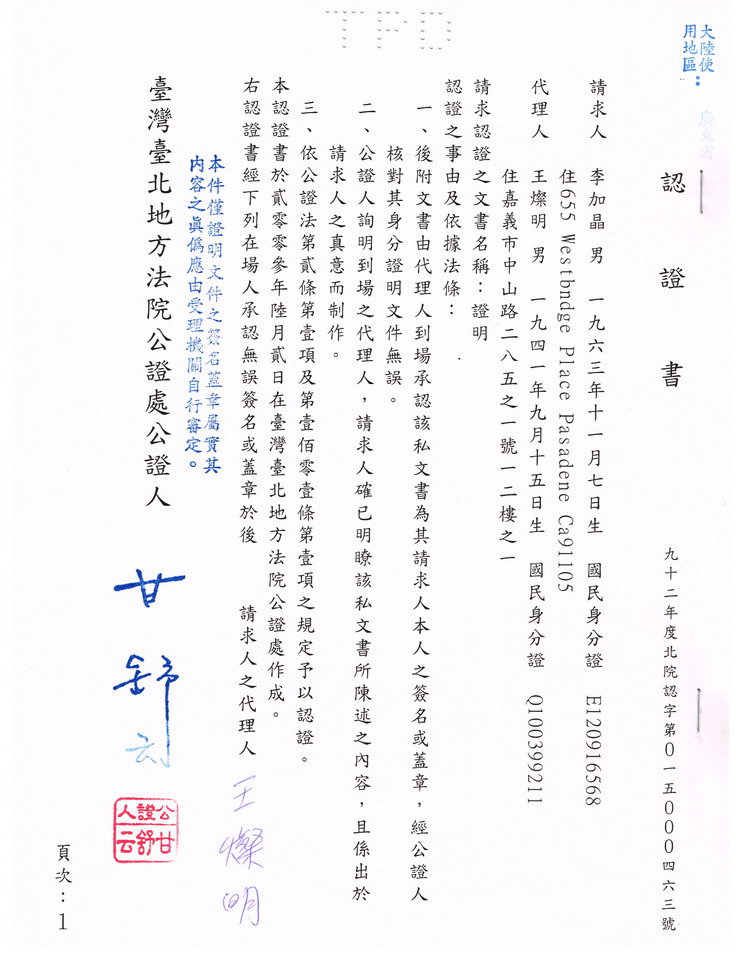 TPD
大陸使
用地區：
廣東省
認證書
九十二年度北院認字第0一五000四六三號
請求人 李加晶 男 一九六三年十一月七日生 國民身分證 E120916568
住655 Westbndge Place Pasadene Ca91105
代理人 王燦明 男 一九四一年九月十五日生 國民身分證 Q100399211
住嘉義市中山路二八五之一號一二樓之一
請求認證之文書名稱：證明
認證之事由及依據法條：
一、後附文書由代理人到場承認該私文書為其請求人本人之簽名或蓋章，經公證人
核對其身分證明文件無誤。
二、公證人詢明到場之代理人，請求人確已明瞭該私文書所陳述之內容，且係出於
請求人之真意而制作。
三、依公證法第貳條第壹項及第壹佰零壹條第壹項之規定予以認證。
本認證書於貳零零參年陸月貳日在臺灣臺北地方法院公證處作成。
右認證書經下列在場人承認無誤簽名或蓋章於後 請求人之代理人 王燦明
本件僅證明文件之簽名蓋章屬實其
內容之真偽應由受理機關自行審定。
臺灣臺北地方法院公證處公證人 甘舒云
公證人
甘舒云
頁次：1